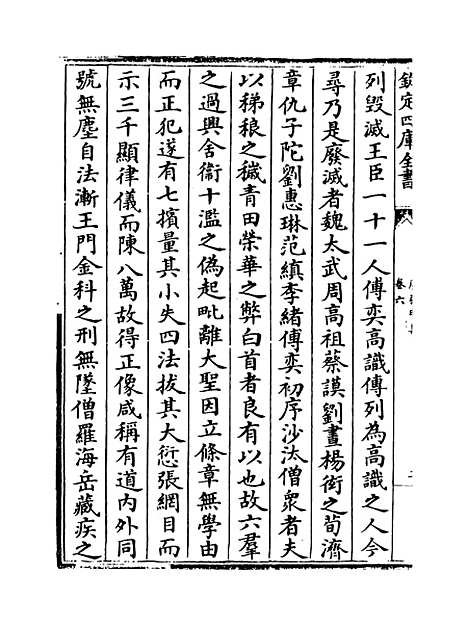 欽定四庫全書
卷六
列毀滅王臣一十一人傅奕高識傳列為高識之人今
尋乃是廢滅者魏太武周高祖蔡謨劉晝楊衒之荀濟
章仇子陀劉惠琳范縝李緒傅奕初序沙汰僧眾者夫
以稊稂之穢青田榮華之弊白首者良有以也故六羣
之過興舍衞十濫之偽起毗離大聖因立條章無學由
而正犯遂有七擯量其小失四法拔其大愆張網目而
示三千顯律儀而陳八萬故得正像咸稱有道内外同
號無塵自法漸王門金科之刑無墜僧羅海岳藏疾之